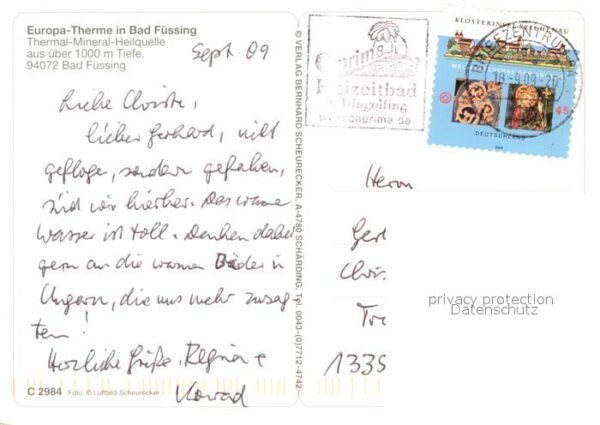 Europa-Therme in Bad Füssing
Thermal-Mineral-Heilquelle
aus über 1000 m Tiefe.
94072 Bad Füssing
Sept. 09
Liebe Christe,
lieber Gerhard, nicht
geflogen, sondern gefahren,
sind wir hierher. Das warme
Wasser ist toll. Denken dabei
gern an die warmen Bäder in
Ungarn, die uns mehr zusag-
ten!
Herzliche Grüße, Regina +
Konrad
C 2984 Foto: © Luftbild-Scheurecker
© VERLAG BERNHARD SCHEURECKER, A-4780 SCHÄRDING, Tel. 0043-(0)7712-4742
Caprima
Freizeitbad
Dingolfing
www.caprima.de
BRIEFZENTRUM
18.-9.09.-20
KLOSTERINSEL REICHENAU
45
DEUTSCHLAND
Herrn
Ger
Chris
Tr
1335
privacy protection
Datenschutz